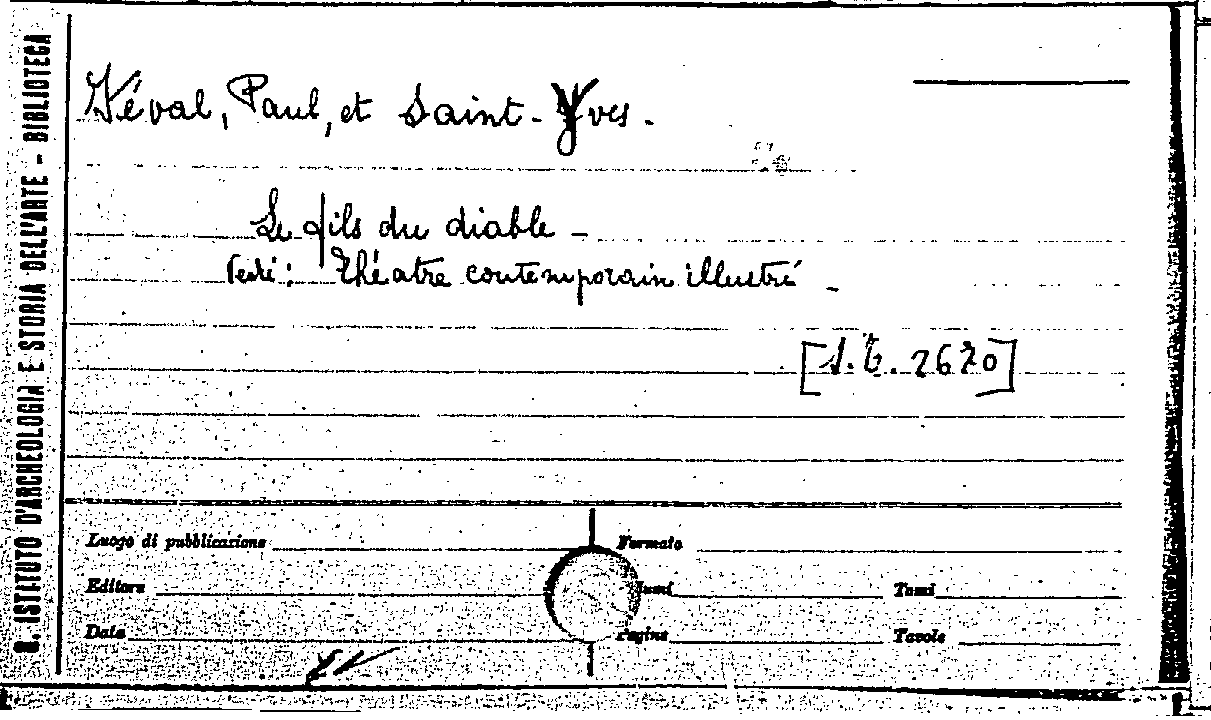 R. ISTITUTO D'ARCHEOLOGIA E STORIA DELL'ARTE - BIBLIOTECA
Féval, Paul, et Saint-Yves.
Le fils du diable -
Vedi: Théatre contemporain illustré -
[S.T. 2670]
Luogo di pubblicazione Formato
Editore Tomi
Data Pagine Tavole